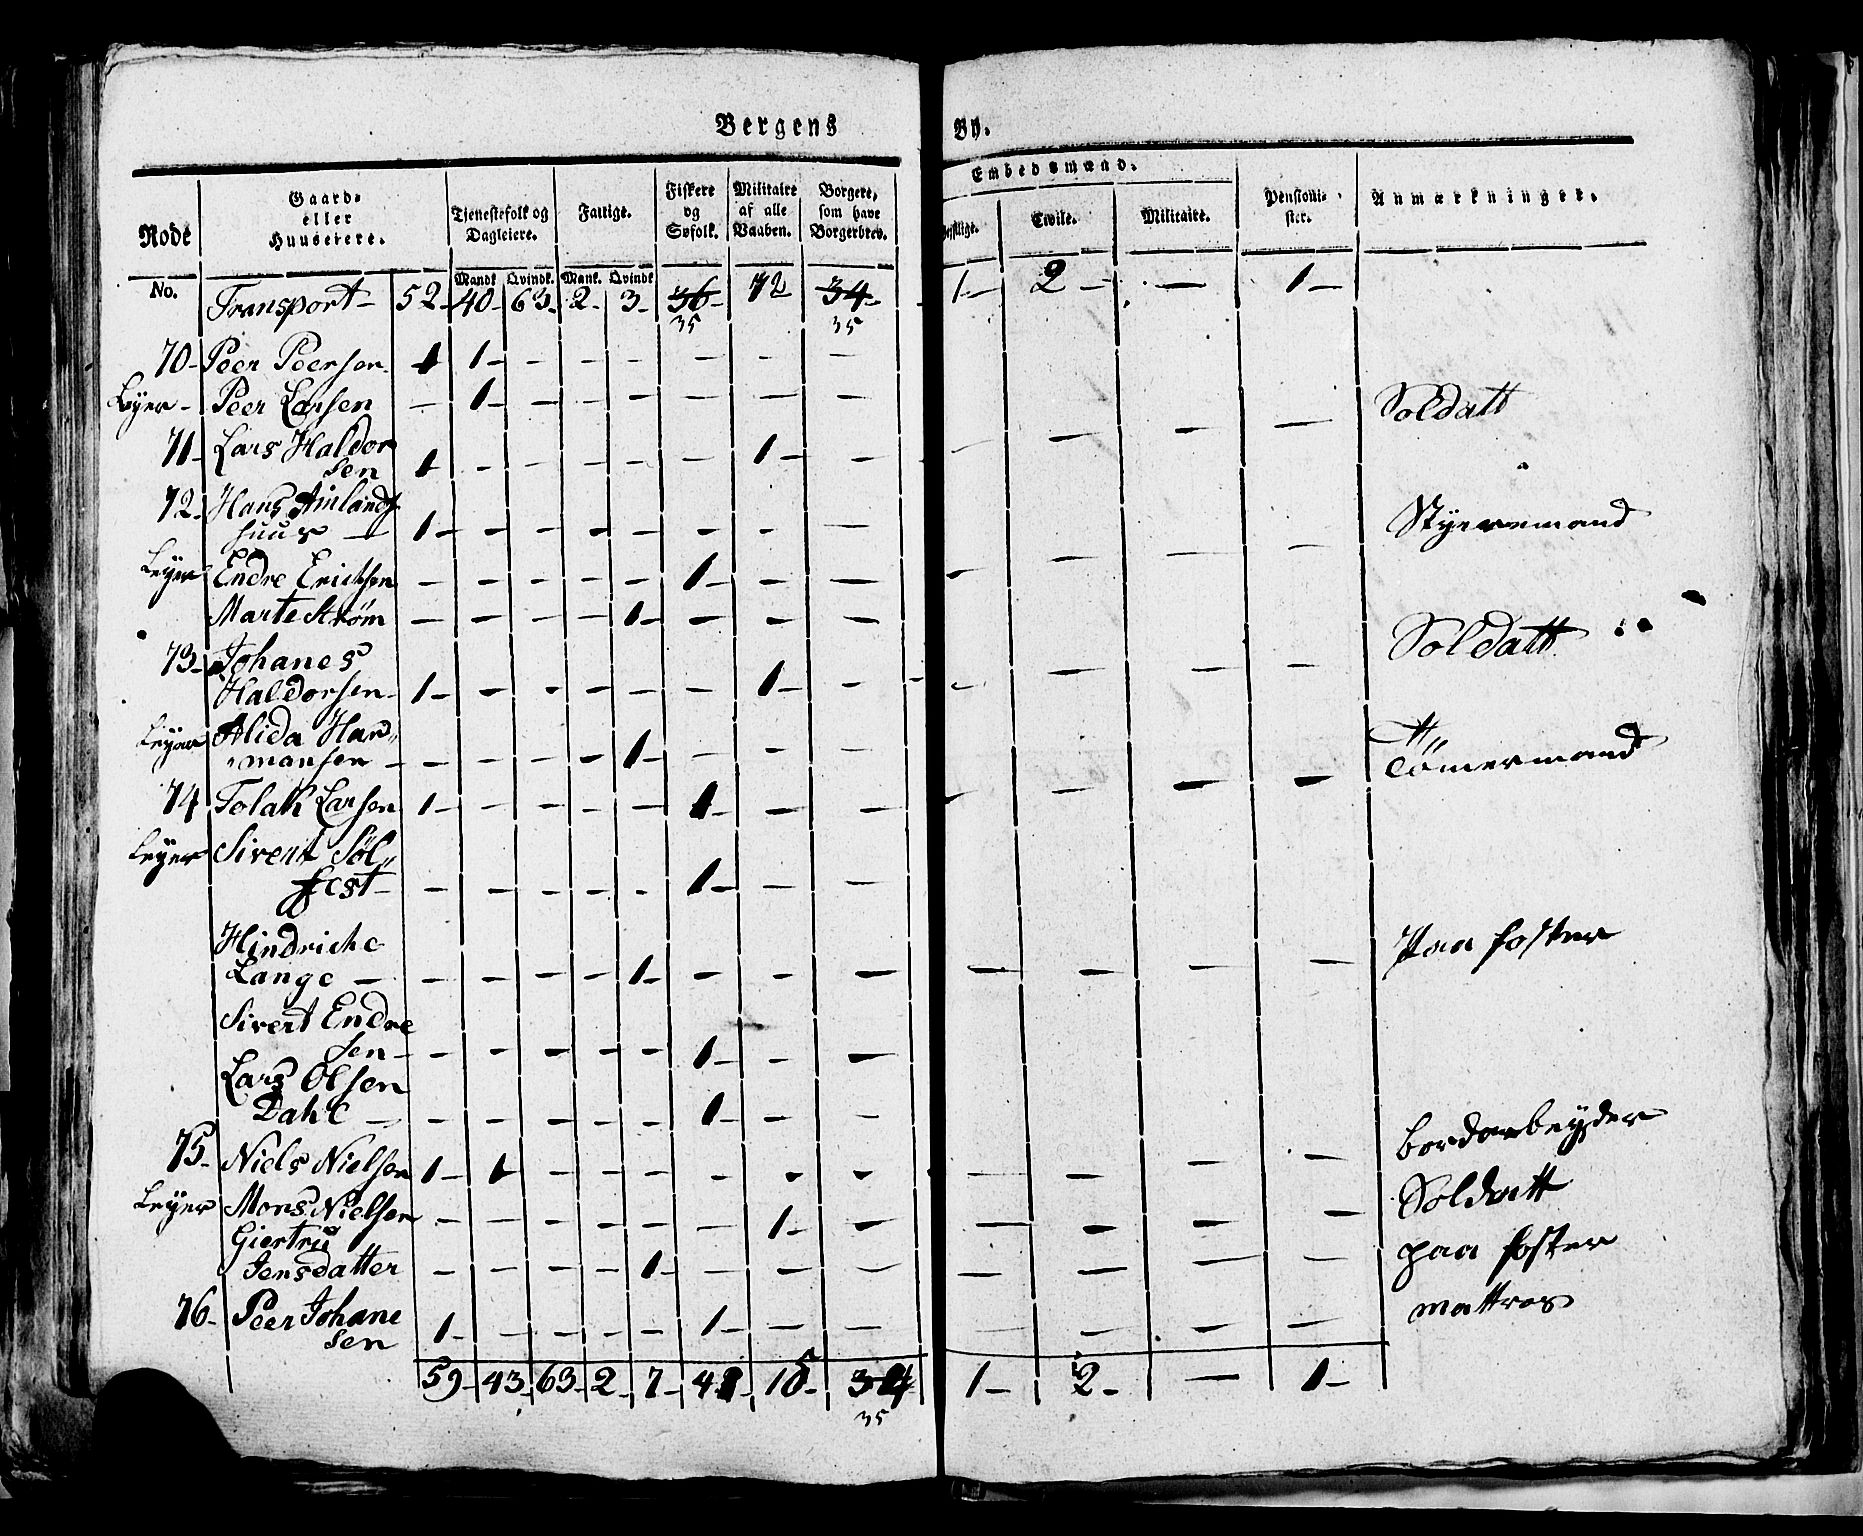 Bergens By.
Rode Gaard- eller Huuseiere. Tjenestefolk og Dagleiere. Fattige. Fiskere og Søfolk. Militaire af alle Vaaben. Borgere, som have Borgerbrev. Embedsmænd. Civile. Militaire. Pensionister. Anmærkninger.
No. Mandk. Qvindk. Mank. Qvindk.
Transport - 52 - 40 - 63 - 2 - 3 - 36 - 35 12 34 - 35 1 - 2 - — 1 -
70 - Peer Peersen - 1 1 - - - - - - -
Leyer - Peer Larsen - 1 - - - - - - -
Soldatt
71 - Lars Haldor
sen 1 - - - - - - 1 - -
72 - Hans Amlands
huus — 1 - - - - - - - -
Styrremand
Leyer Endre Erichsen - - - - - 1 - - -
Marte Strøm - - - - 1 - - - -
73 - Johanes
Haldorsen - 1 - - - - - - 1 - -
Soldatt
Leyer Alida Har„
„mansen - - - - - 1 - - - -
Tömermand
74 Tolak Larsen 1 - - - - - 1 - -
Leyer Sivert Söl„
fest - - - - - - 1 - - -
Hindriche
Lange — - - - - 1 - - - -
Paa foster
Sivert Endre
sen - - - - - - 1 - - -
Lars Olsen
Dahl — - - - - - 1 - - -
75 - Niels Nielsen 1 - 1 - - - - - -
bordarbeyder
Leyer Mons Nielsen - - - - - - 1 - -
Soldatt
Giertru
Jensdatter - - - - 1 - - - -
paa foster
76 - Peer Johane
sen 1 - - - - - 1 - - -
mattros
59 - 43 - 63 - 2 - 7 - 41 - 15 - 34 1 - 2 - — 1 -
35